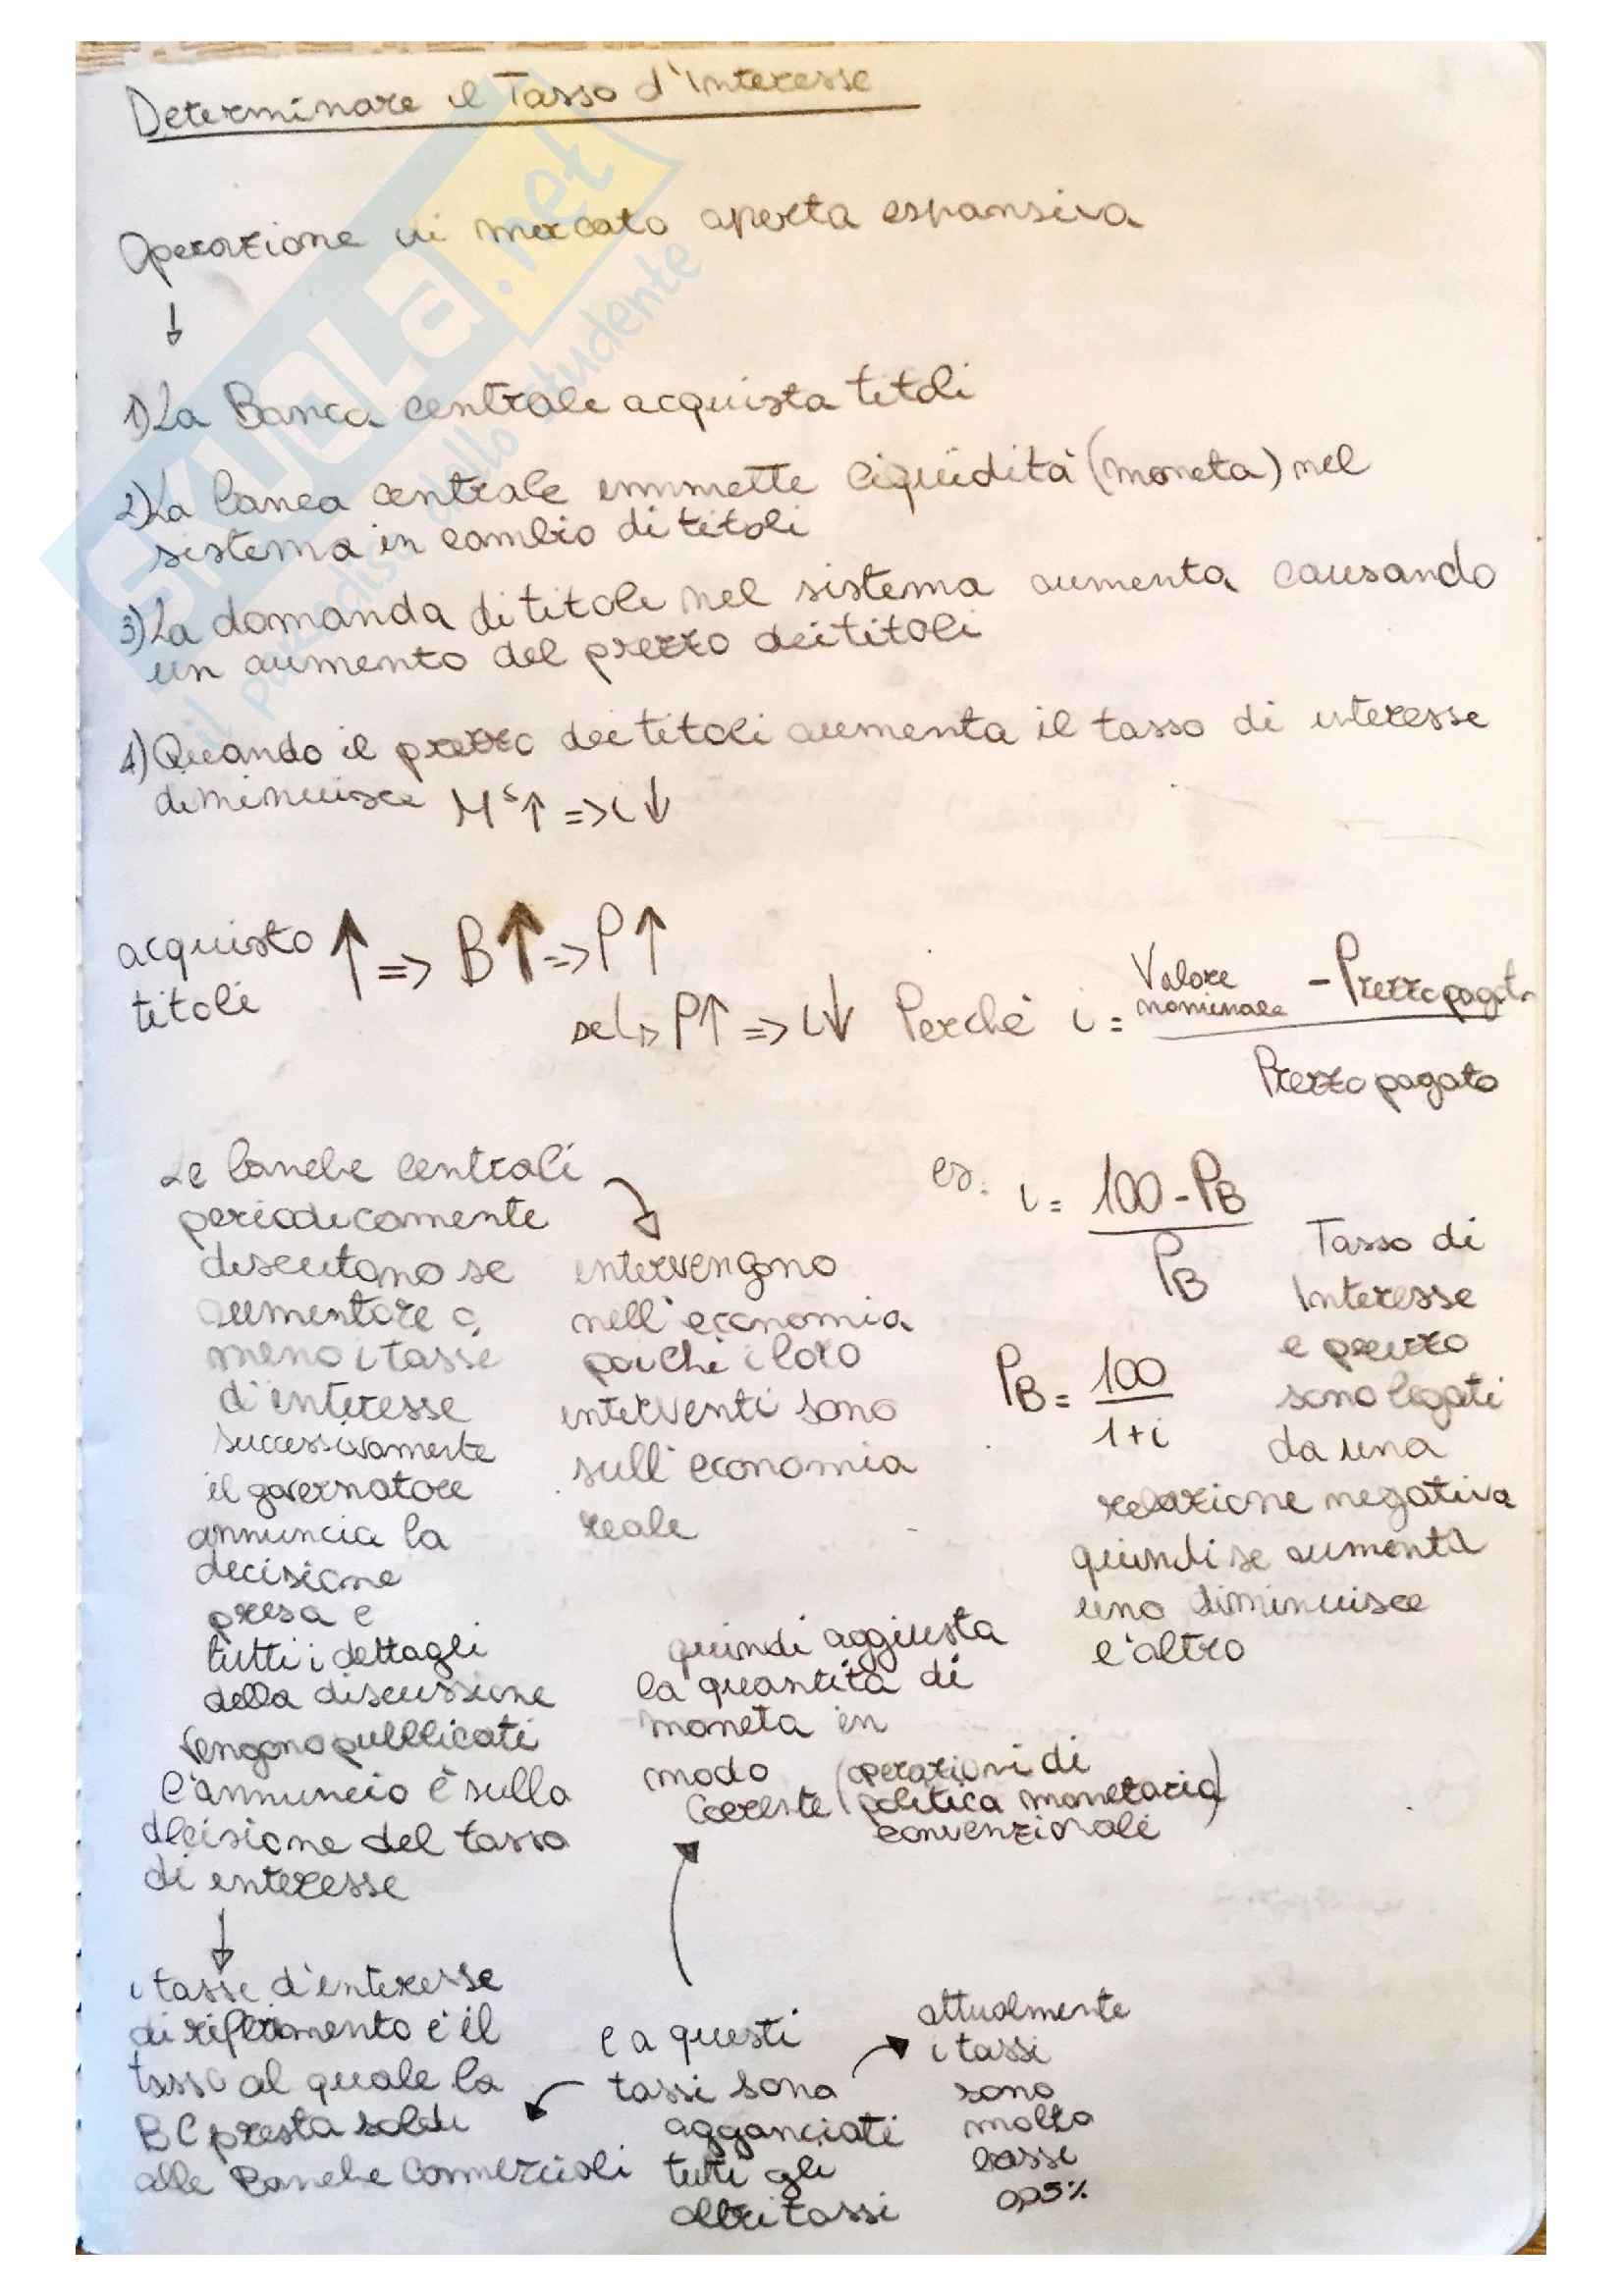 Determinare il Tasso d'Interesse
Operazione di mercato aperta espansiva
↓
1) La Banca centrale acquista titoli
2) La banca centrale immette liquidità (moneta) nel
sistema in cambio di titoli
3) La domanda di titoli nel sistema aumenta causando
un aumento del prezzo dei titoli
4) Quando il prezzo dei titoli aumenta il tasso di interesse
diminuisce Mˢ↑ => i↓
acquisto ↑ => B↑ => P↑
titoli
se P↑ => i↓ Perchè i = Valore nominale - Prezzo pagato
Prezzo pagato
Le banche centrali
periodicamente
discutono se
aumentare o
meno i tassi
d'interesse
successivamente
il governatore
annuncia la
decisione
presa e
tutti i dettagli
della discussione
vengono pubblicati
l'annuncio è sulla
decisione del tasso
di interesse
↓
i tassi d'interesse
di riferimento è il
tasso al quale la
BC presta soldi
alle Banche Commerciali
intervengono
nell'economia
poichè i loro
interventi sono
sull'economia
reale
es. i = 100 - PB
PB
PB = 100
1+i
Tasso di
Interesse
e prezzo
sono legati
da una
relazione negativa
quindi se aumenta
uno diminuisce
l'altro
quindi aggiusta
la quantità di
moneta in
modo
coerente (operazioni di
politica monetaria)
convenzionali
e a questi
tassi sono
agganciati
tutti gli
altri tassi
attualmente
i tassi
sono
molto
bassi
0,05%
SKUOLA.net
il paradiso dello studente